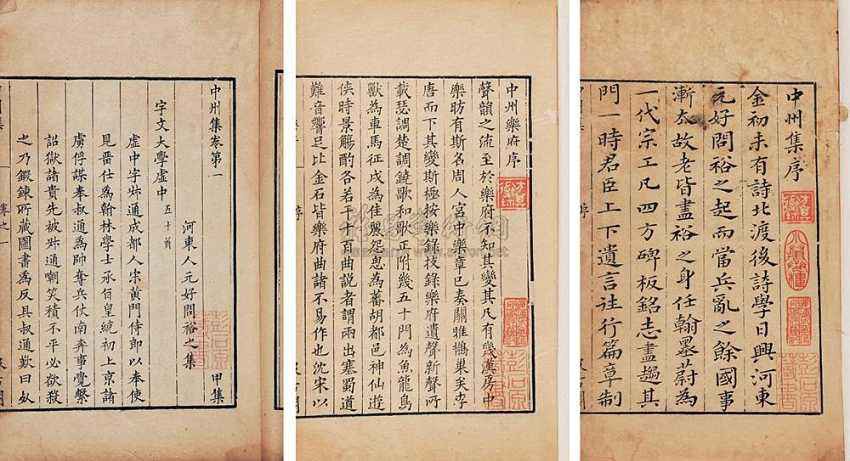 中州集序
金初未有詩北渡後詩學日興河東
元好問裕之起而當兵亂之餘國事
漸太故老皆盡裕之身任翰墨蔚為
一代宗工凡四方碑板銘志盡趨其
門一時君臣上下遺言往行篇章制
序
中州樂府序
聲韻之流至於樂府不知其變其凡有幾漢房中
樂昉有斯名周人宮中樂章已奏關雎鵲巢矣李
唐而下其變斯極按樂錄技錄樂府遺聲新聲所
載瑟調楚調鐃歌和歌正附幾五十門為魚龍鳥
獸為車馬征戍為佳麗怨思為蕃胡都邑神仙遊
俠時景觴酌各若干十百曲說者謂兩出塞蜀道
難音響足比金石皆樂府曲諸不易作也沈宋以
序
中州集卷第一 甲集
河東人元好問裕之集
宇文大學虛中 五十首
虛中字叔通成都人宋黃門侍郎以奉使
見留仕為翰林學士承旨皇統初上京諸
虜俘謀奉叔通為帥奪兵仗南奔事覺繫
詔獄諸貴先被叔通嘲笑積不平必欲殺
之乃鍛鍊所藏圖書為反具叔通歎曰死
卷之一